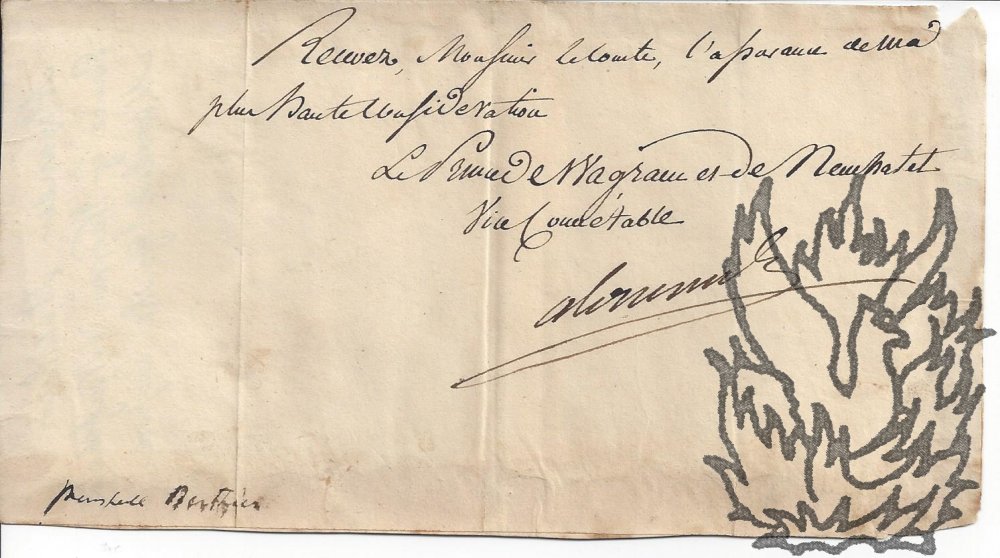 Recevez, Monsieur le Comte, l'assurance de ma
plus haute Considération
Le Prince de Wagram et de Neuchatel
Vice Connétable
alexandre
marechal Berthier